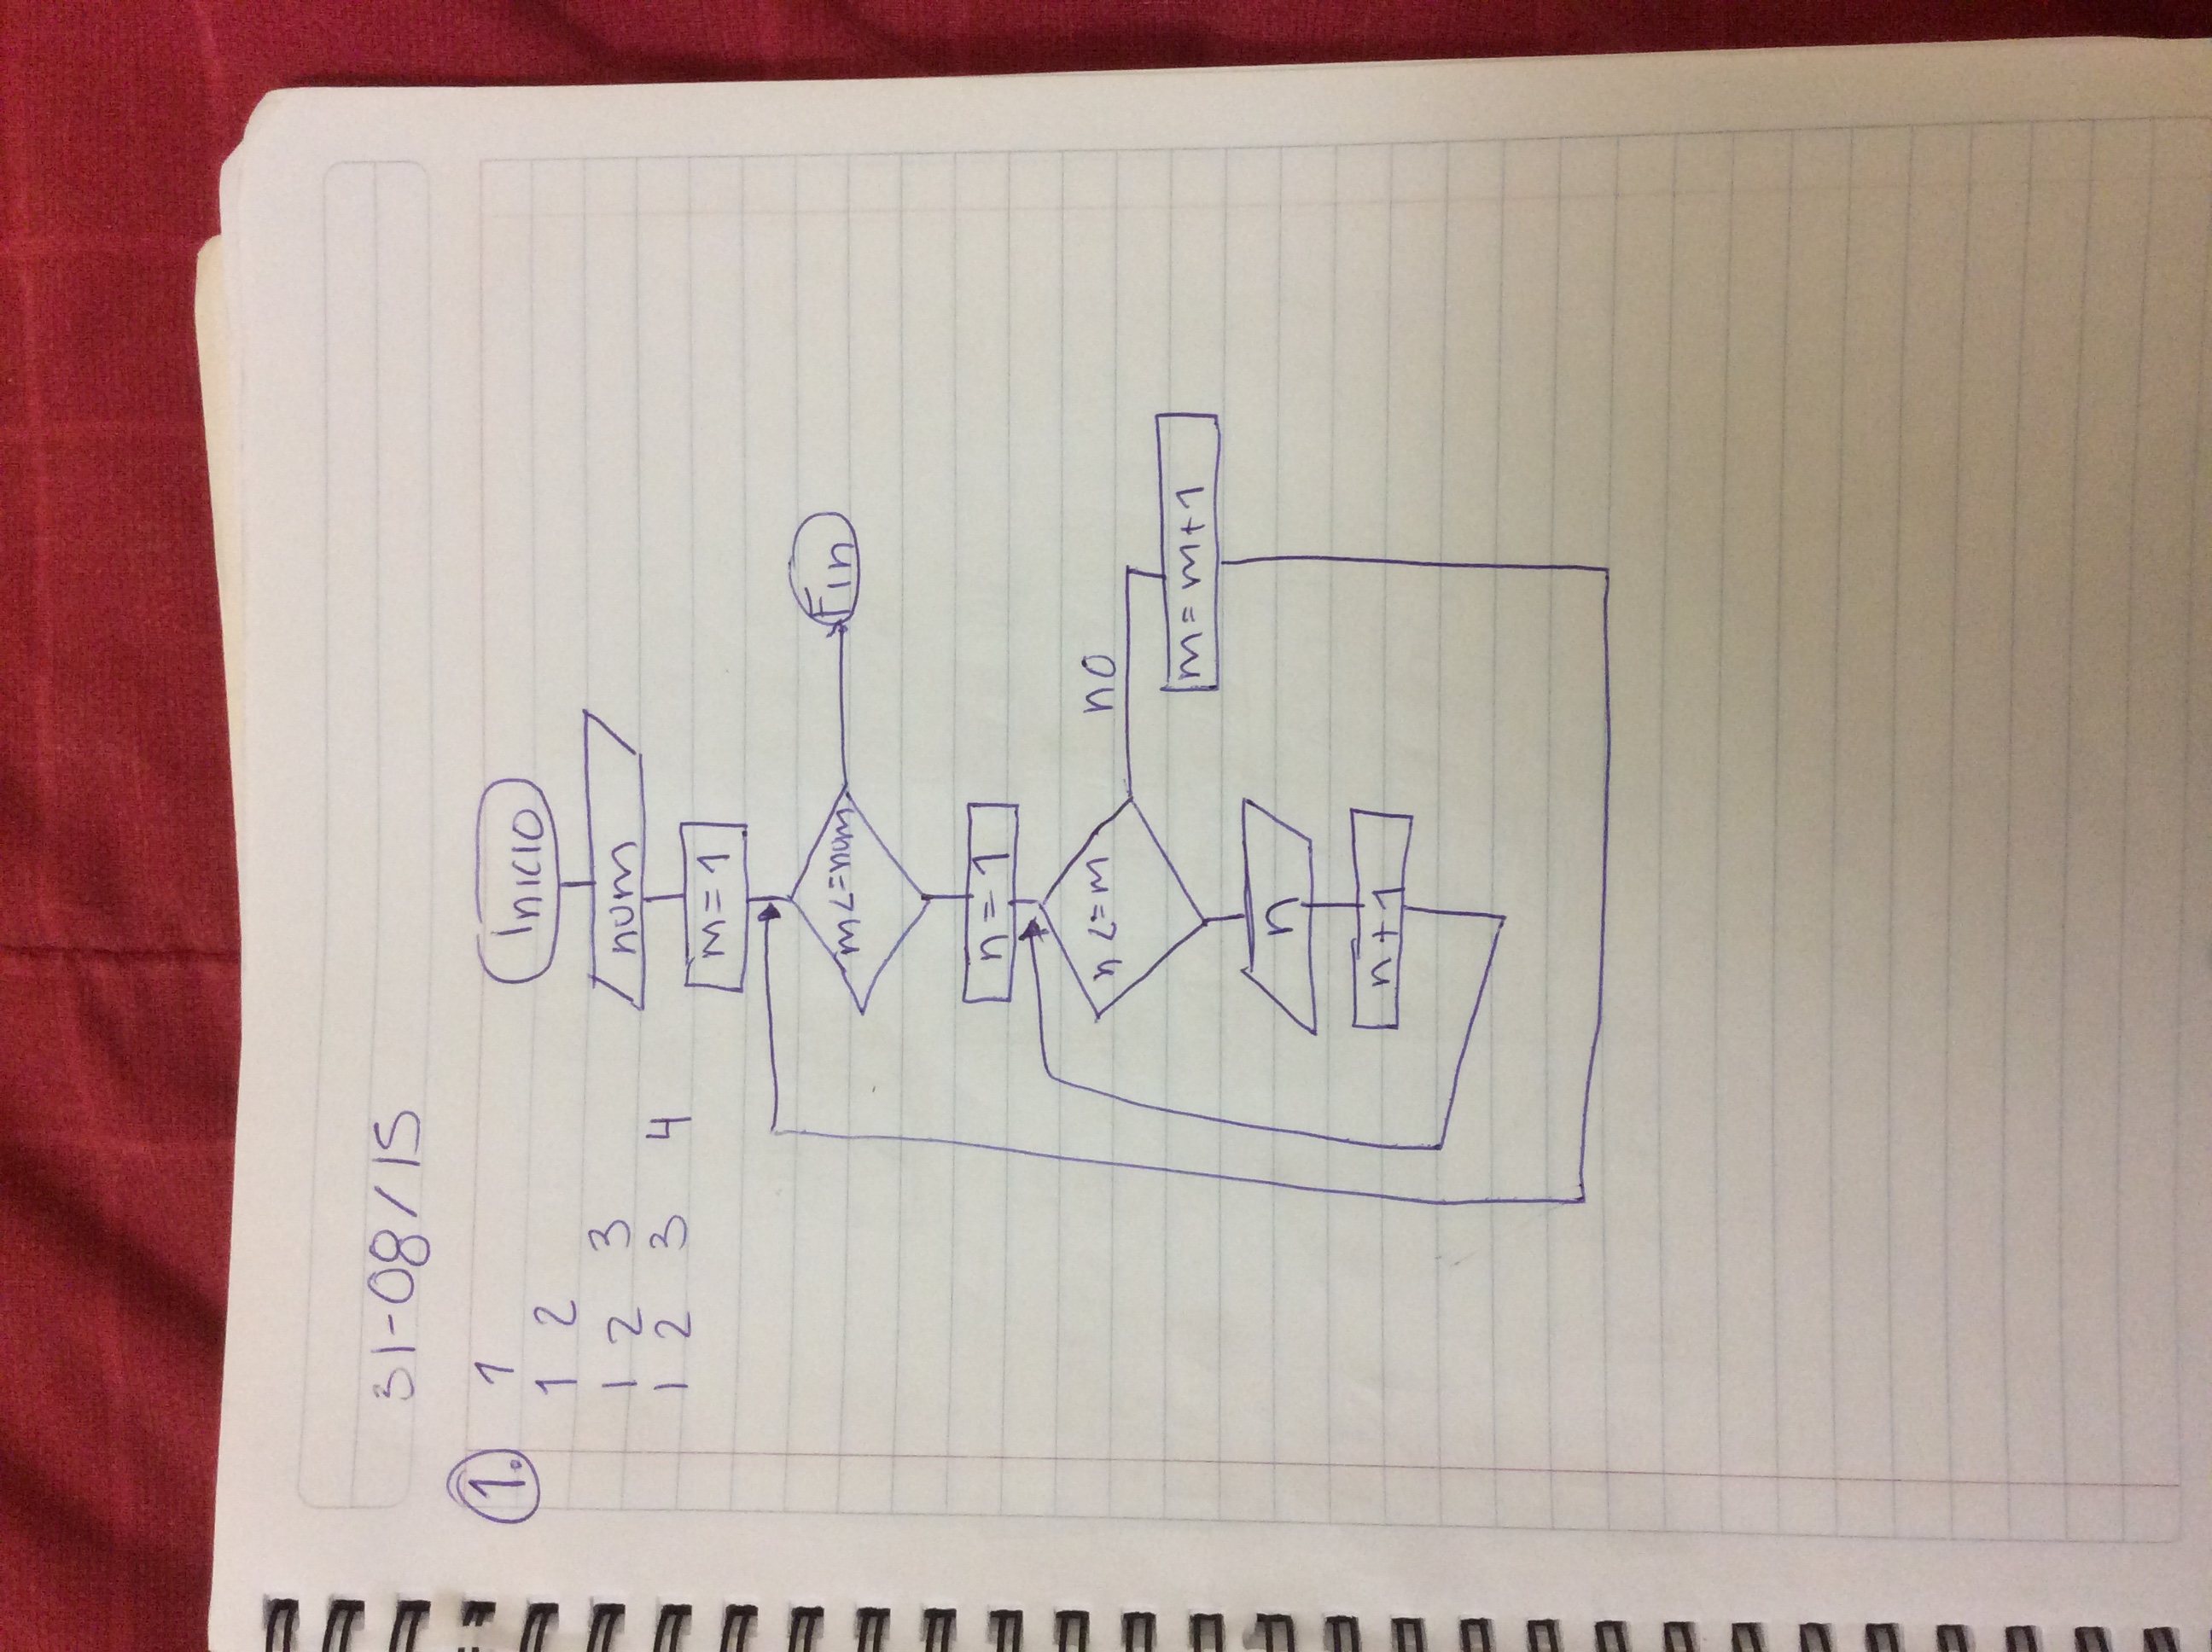 31-08/15
1. 1
1 2
1 2 3
1 2 3 4
Inicio
num
m=1
m<=num
Fin
n=1
n<=m
no
m=m+1
n
n+1